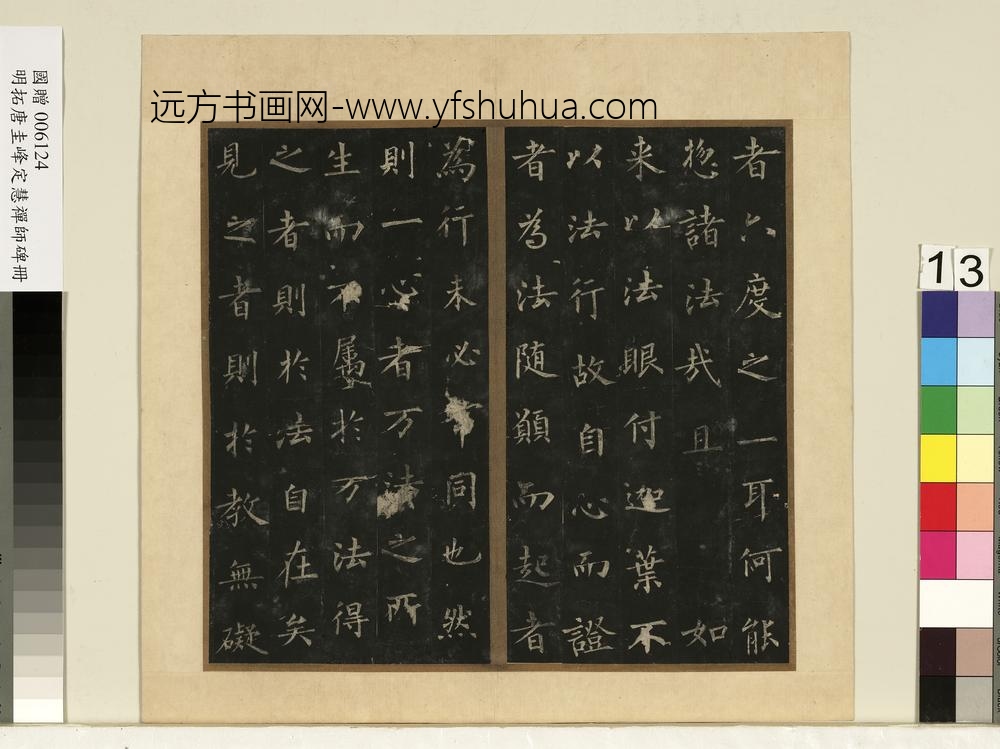 國贈 006124
明拓唐圭峰定慧禪師碑冊
远方书画网-www.yfshuhua.com
者六度之一耳何能
揔諸法哉且如
来以法眼付迦葉不
以法行故自心而證
者為法随願而起者
為行未必同也然
則一心者万法之所
生而不属於万法得
之者則於法自在矣
見之者則於教無礙
13